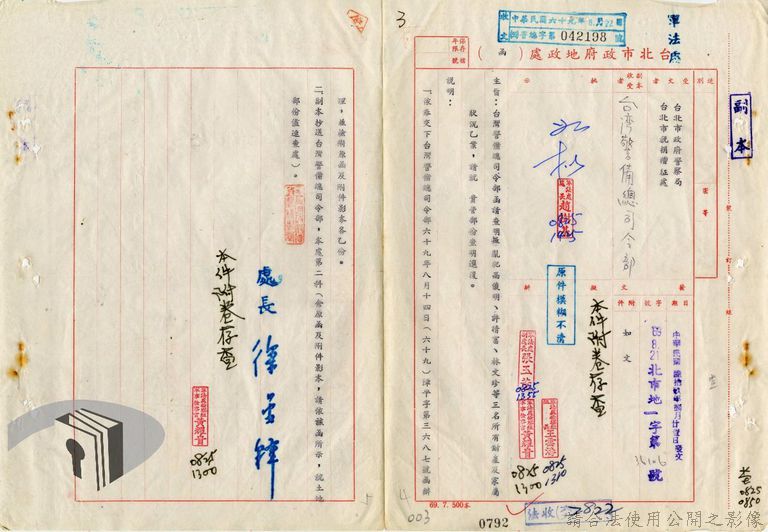 中華民國六十九年 8.月22日
收文
測晉總字第042198號
軍法處
3
台北市政府地政處(函)
保存年限
檔號
副本
速別
密等
受文者
台北市政府警察局
台北市稅捐稽徵處
副本收受者
台灣警備總司令部
批示
擬辦
發文
日期
字號
附件
69.8.21
北市地一字第
號
如文
主旨：台灣警備總司令部函請查明叛亂犯高俊明、許晴富、林文珍等三名所有財產及家屬
狀況乙案，請就 貴管部份查明逕復。
說明：
一、依奉交下台灣警備總司令部六十九年八月十四日(六十九)津平字第三六八七號函辦
理，並檢附原函及附件影本各乙份。
二、副本抄送台灣警備總司令部，本處第二科(含原函及附件影本，請依該函所示，就土地
部份儘速查處)。
原件模糊不清
本件附卷存查
0825
1355
0825
1310
0825
1300
處長 徐
本件附卷存查
黃雅音
0825
1300
查
0825
0850
69. 7. 500本
0792
003
法收(
2822
裝
訂
線
請合法使用公開之影像